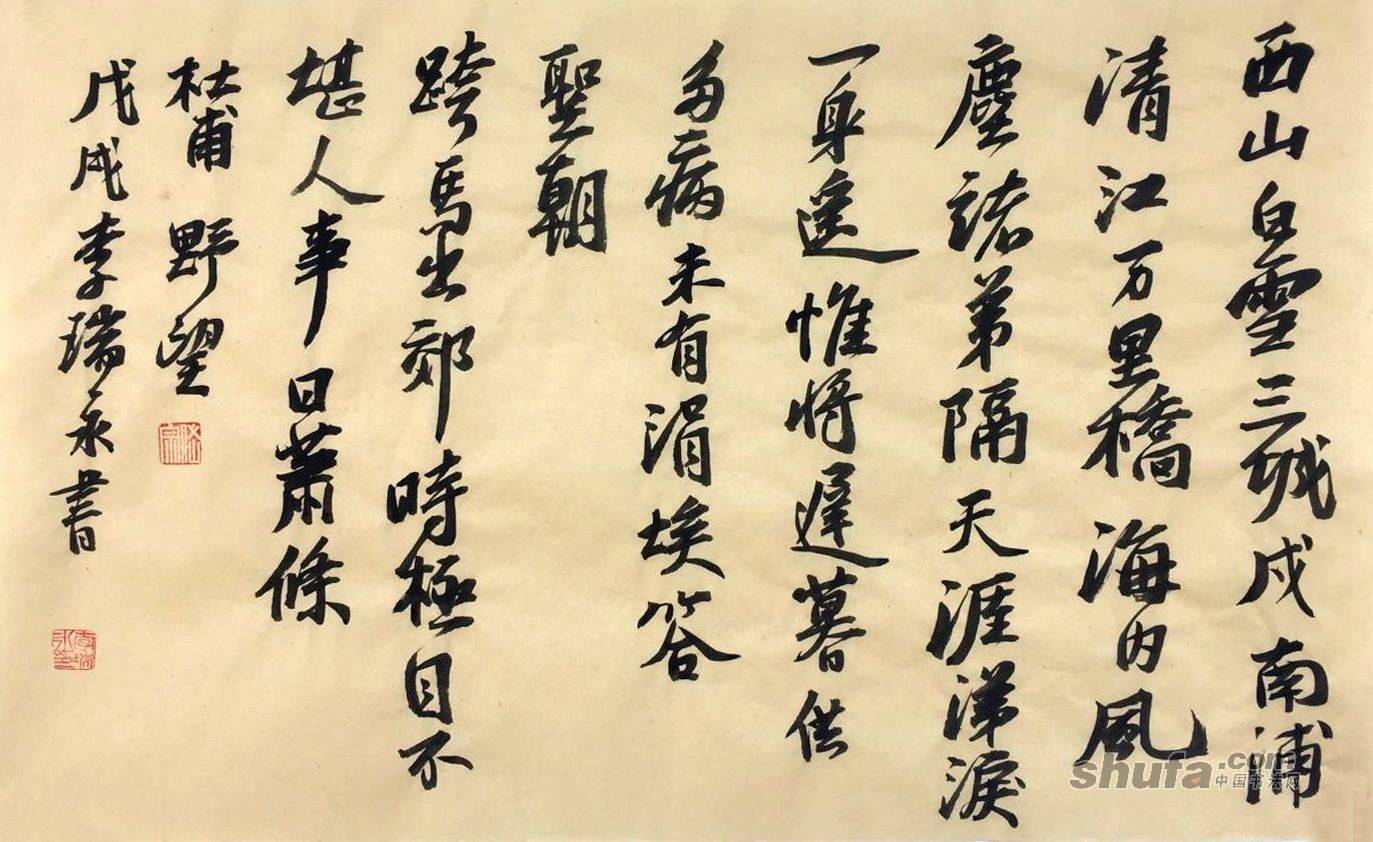 西山白雪三城戍南浦
清江万里橋海内風
塵諸弟隔天涯涕淚
一身遙惟將遲暮供
多病未有涓埃答
聖朝
跨馬出郊時極目不
堪人事日蕭條
杜甫 野望
戊戌李瑞永書
shufa.com
中国书法网